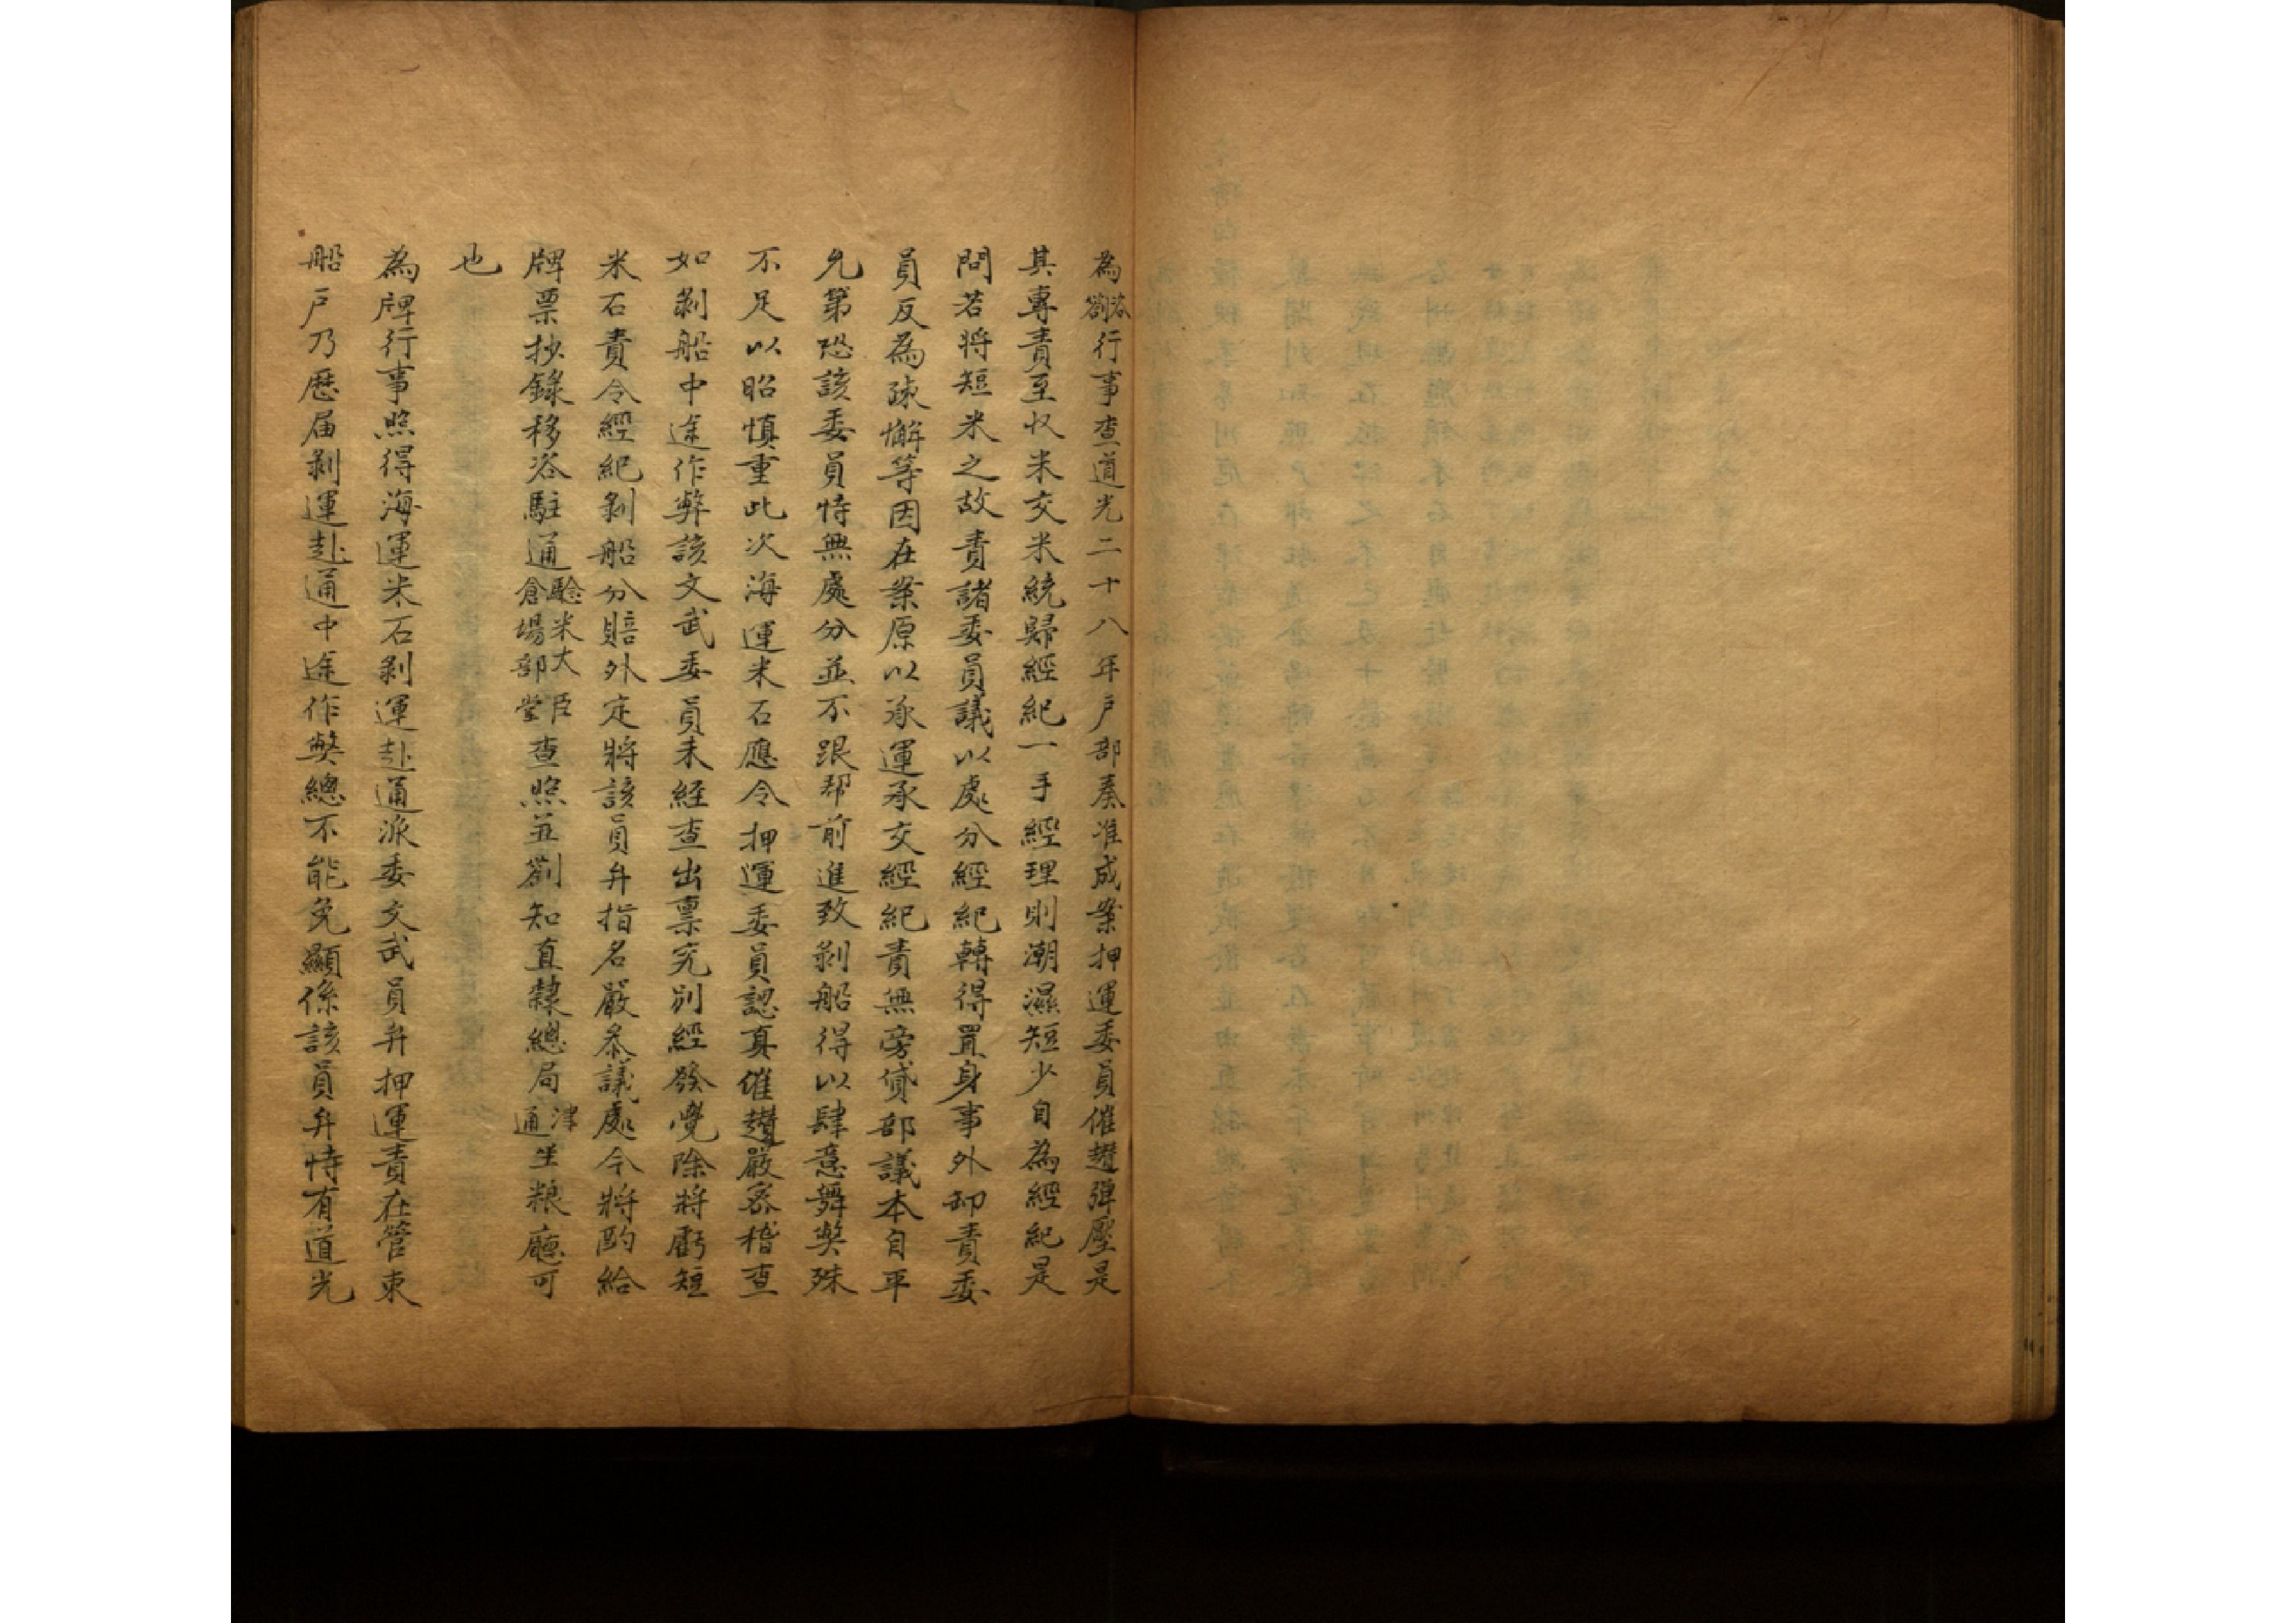 為咨劄行事查道光二十八年戶部奏准成案押運委員催趲彈壓是
其專責至收米交米統歸經紀一手經理則潮濕短少自為經紀是
問若將短米之故責諸委員議以處分經紀轉得置身事外卸責委
員反為疎懈等因在案原以承運承交經紀責無旁貸部議本自平
允第恐該委員恃無處分並不跟帮前進致剝船得以肆意舞獘殊
不足以昭慎重此次海運米石應令押運委員認真催趲嚴密稽查
如剝船中途作弊該文武委員未經查出禀究別經發覺除將虧短
米石責令經紀剝船分賠外定將該員弁指名嚴叅議處今將酌給
牌票抄錄移咨駐通驗米大臣倉場部堂查照並劄知直隸總局津通坐粮廳可
也
為牌行事照得海運米石剝運赴通派委文武員弁押運責在管束
船戶乃歷届剝運赴通中途作獘總不能免顯係該員弁恃有道光